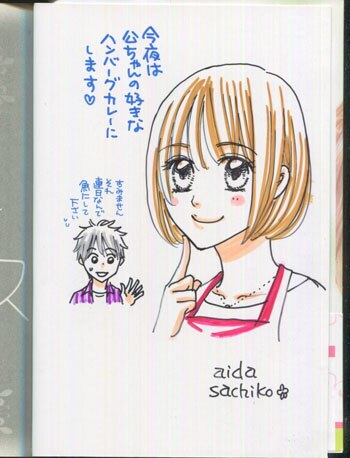 今夜は
公ちゃんの好きな
ハンバーグカレーに
します♡
すみません
それ
連日なんで
魚にして
下さい
aida
sachiko
ス